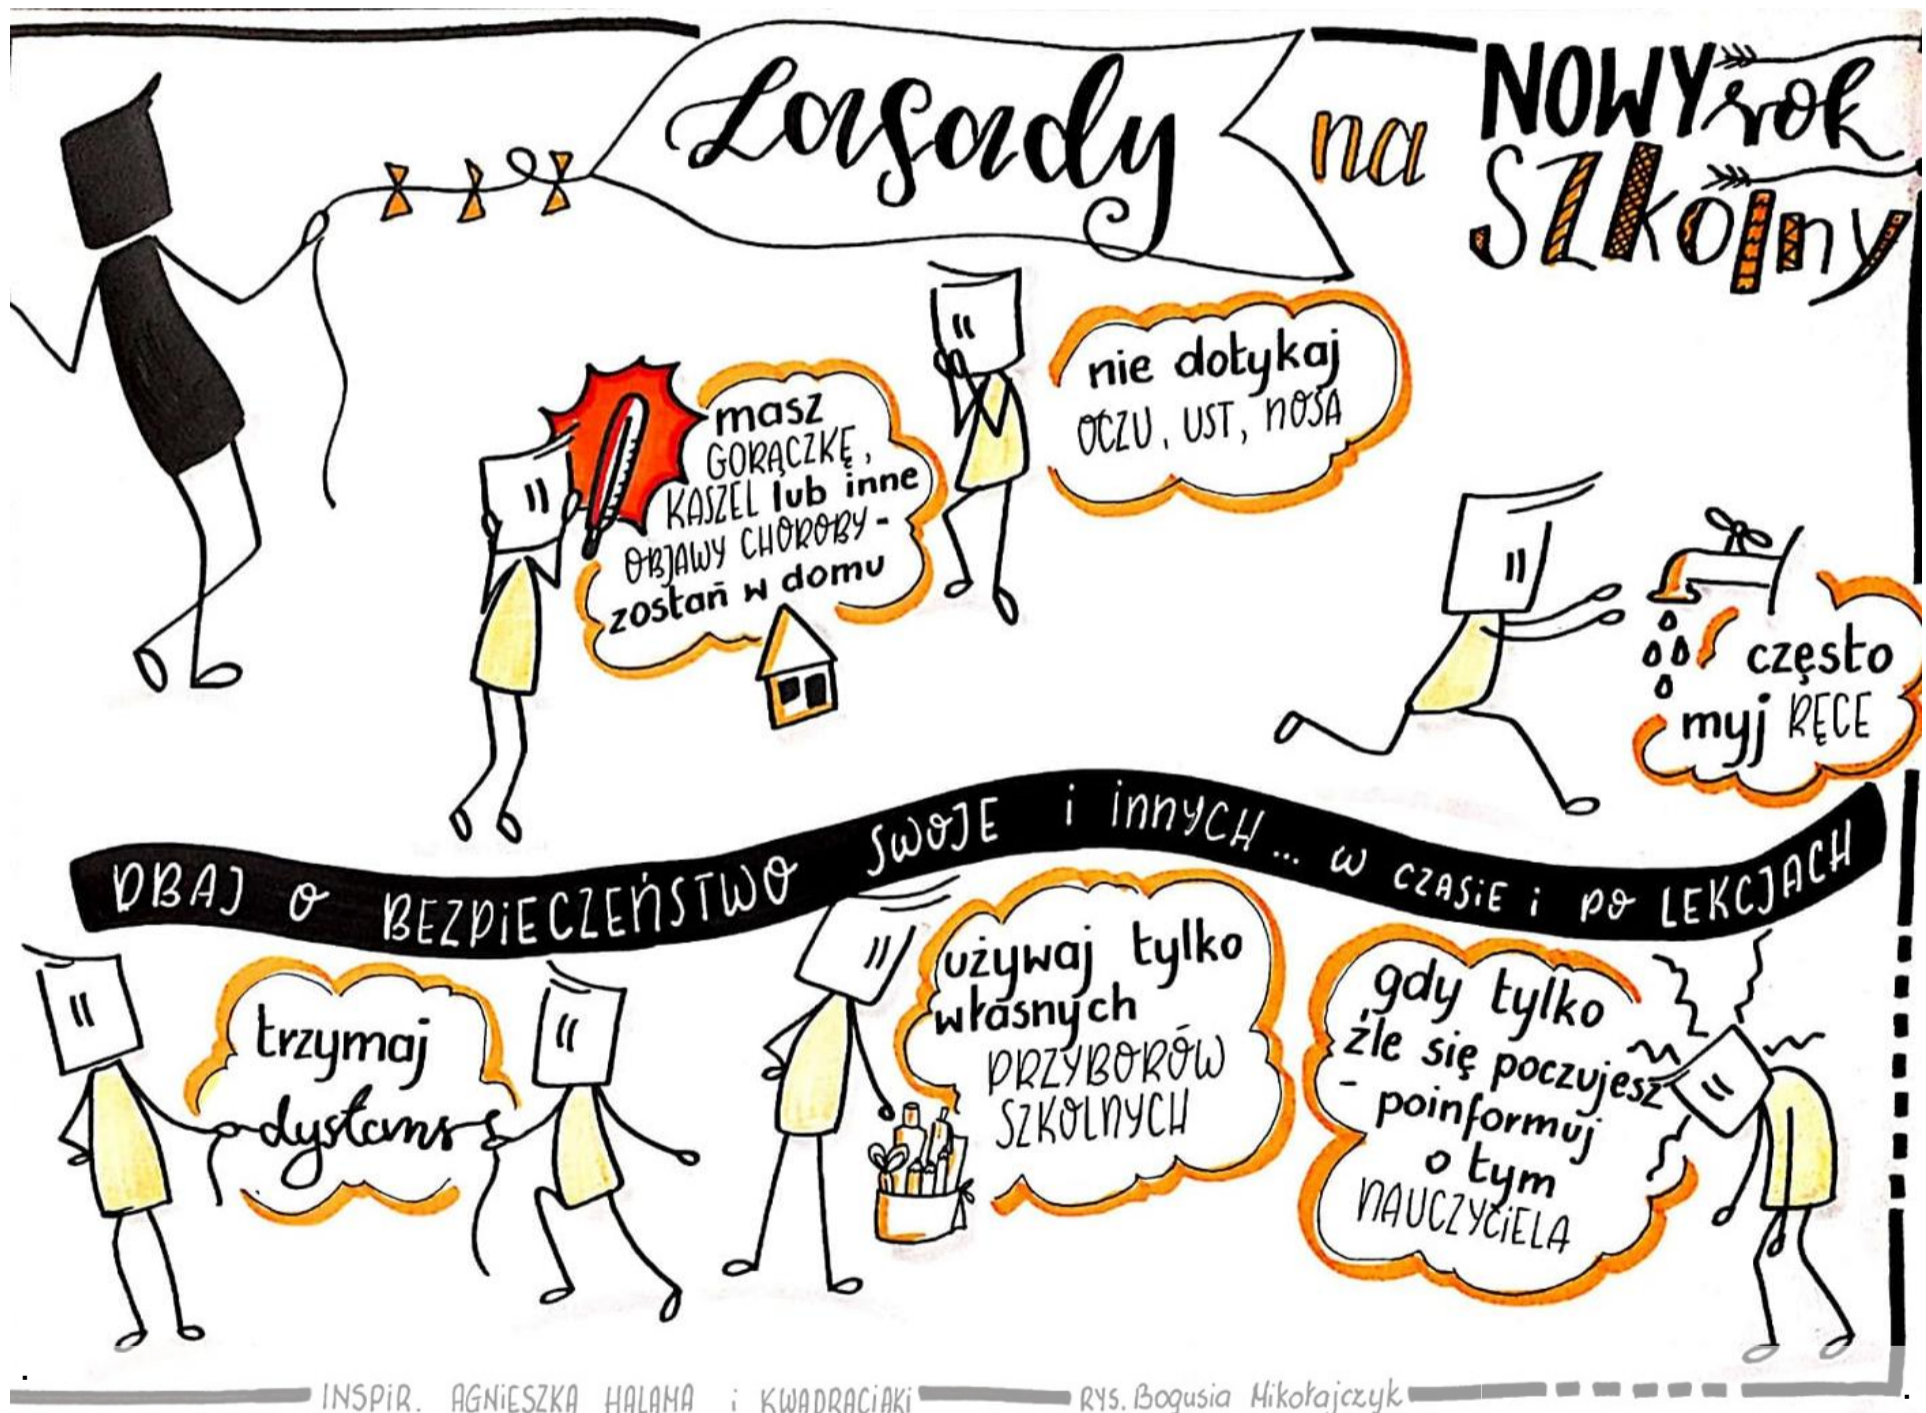 Zasady
na
NOWY rok
SZKOlny
nie dotykaj
OCZU, UST, NOSA
masz
GORĄCZKĘ,
KASZEL lub inne
OBJAWY CHOROBY -
zostań w domu
często
myj RĘCE
DBAJ O BEZPIECZEŃSTWO SWOJE i INNYCH... W CZASIE i PO LEKCJACH
trzymaj
dystans
używaj tylko
własnych
PRZYBORÓW
SZKOLNYCH
gdy tylko
źle się poczujesz
- poinformuj
o tym
NAUCZYCIELA
INSPIR. AGNIESZKA HALAMA i KWADRACIAKI
RYS. Bogusia Mikołajczyk